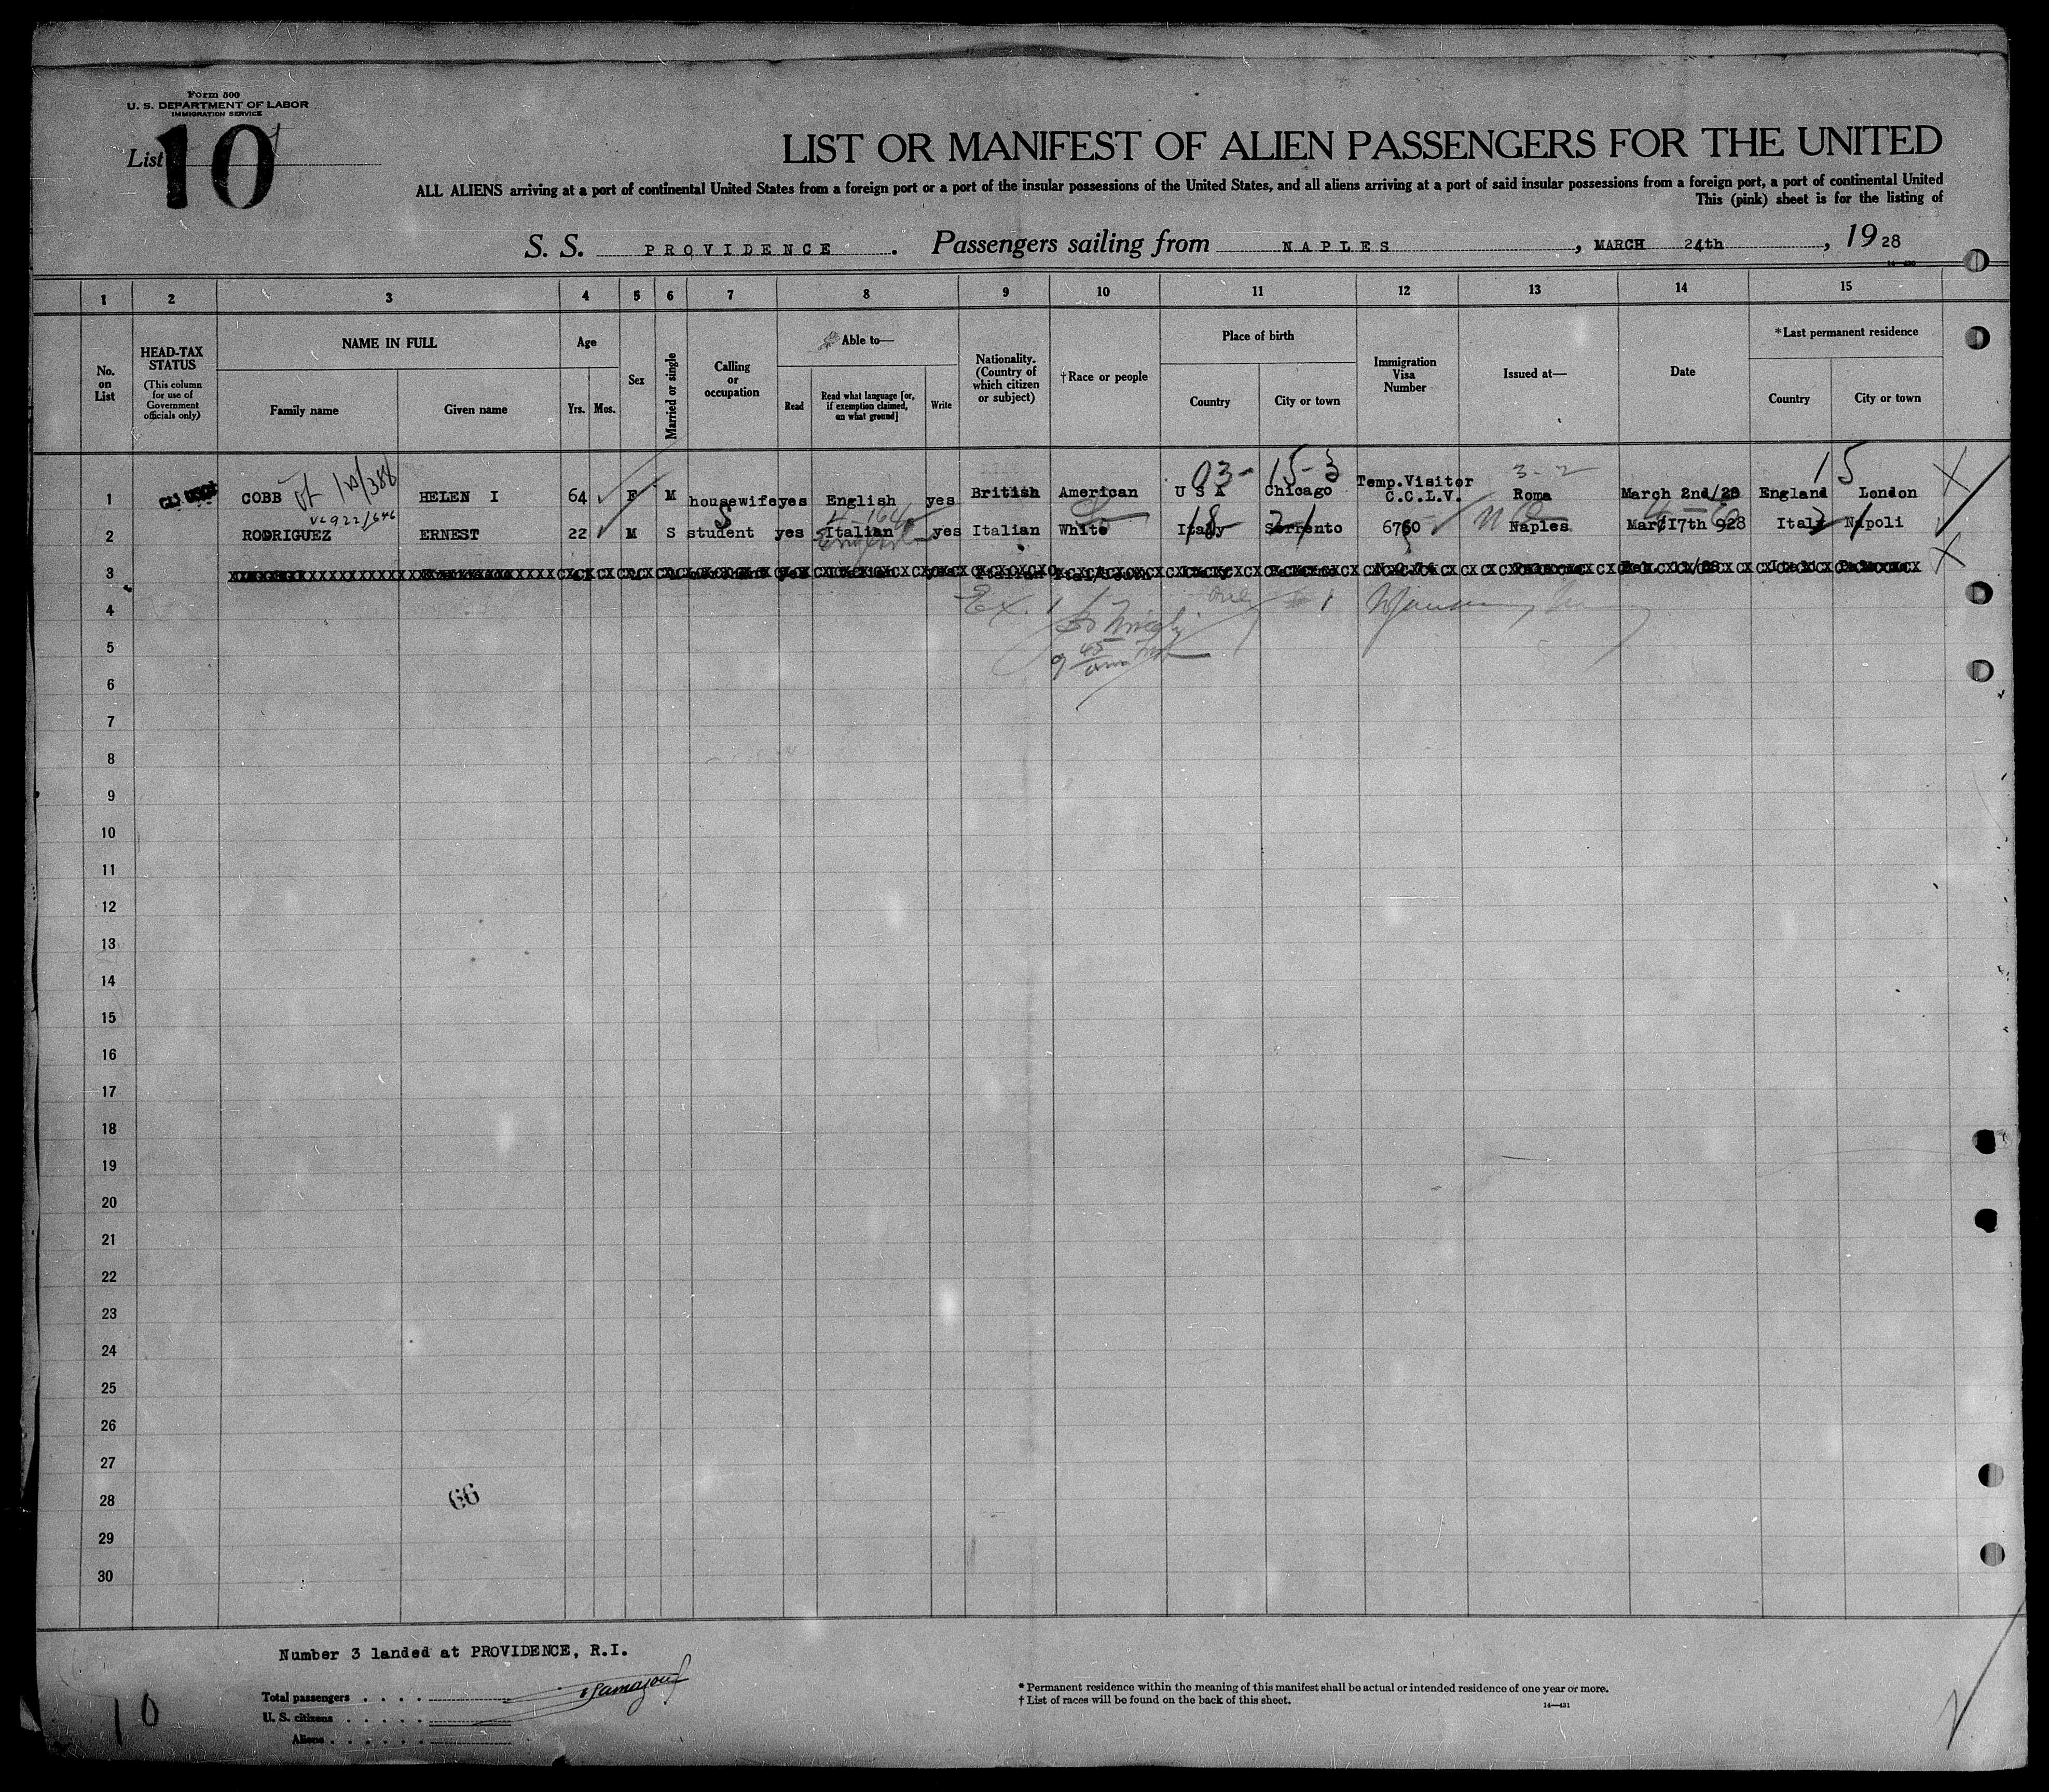 Form 500
U. S. DEPARTMENT OF LABOR
IMMIGRATION SERVICE
List 10
LIST OR MANIFEST OF ALIEN PASSENGERS FOR THE UNITED
ALL ALIENS arriving at a port of continental United States from a foreign port or a port of the insular possessions of the United States, and all aliens arriving at a port of said insular possessions from a foreign port, a port of continental United
This (pink) sheet is for the listing of
S. S. PROVIDENCE. Passengers sailing from NAPLES, MARCH 24th, 1928
1 2 3 4 5 6 7 8 9 10 11 12 13 14 15
No. on List
HEAD-TAX STATUS
(This column for use of Government officials only)
NAME IN FULL
Family name
Given name
Age
Yrs. Mos.
Sex
Married or single
Calling or occupation
Able to—
Read
Read what language [or, if exemption claimed, on what ground]
Write
Nationality. (Country of which citizen or subject)
†Race or people
Place of birth
Country
City or town
Immigration Visa Number
Issued at—
Date
*Last permanent residence
Country
City or town
03- 15-3 3-2 15
1 COBB HELEN I 64 F M housewife yes English yes British American U S A Chicago Temp.Visitor C.C.L.V. Roma March 2nd/28 England London X
2 RODRIGUEZ ERNEST 22 M S student yes Italian yes Italian White Italy Sorrento 6760 Naples Mar. 17th 928 Italy Napoli
English
3 X
4 Ex.
5
6
7
8
9
10
11
12
13
14
15
16
17
18
19
20
21
22
23
24
25
26
27
28
29
30
66
Number 3 landed at PROVIDENCE, R.I.
Total passengers . . . .
U. S. citizens . . . . .
Aliens . . . . . .
10
* Permanent residence within the meaning of this manifest shall be actual or intended residence of one year or more.
† List of races will be found on the back of this sheet.
14—431